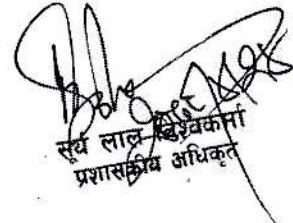 सूर्य लाल विश्वकर्मा
प्रशासकीय अधिकृत